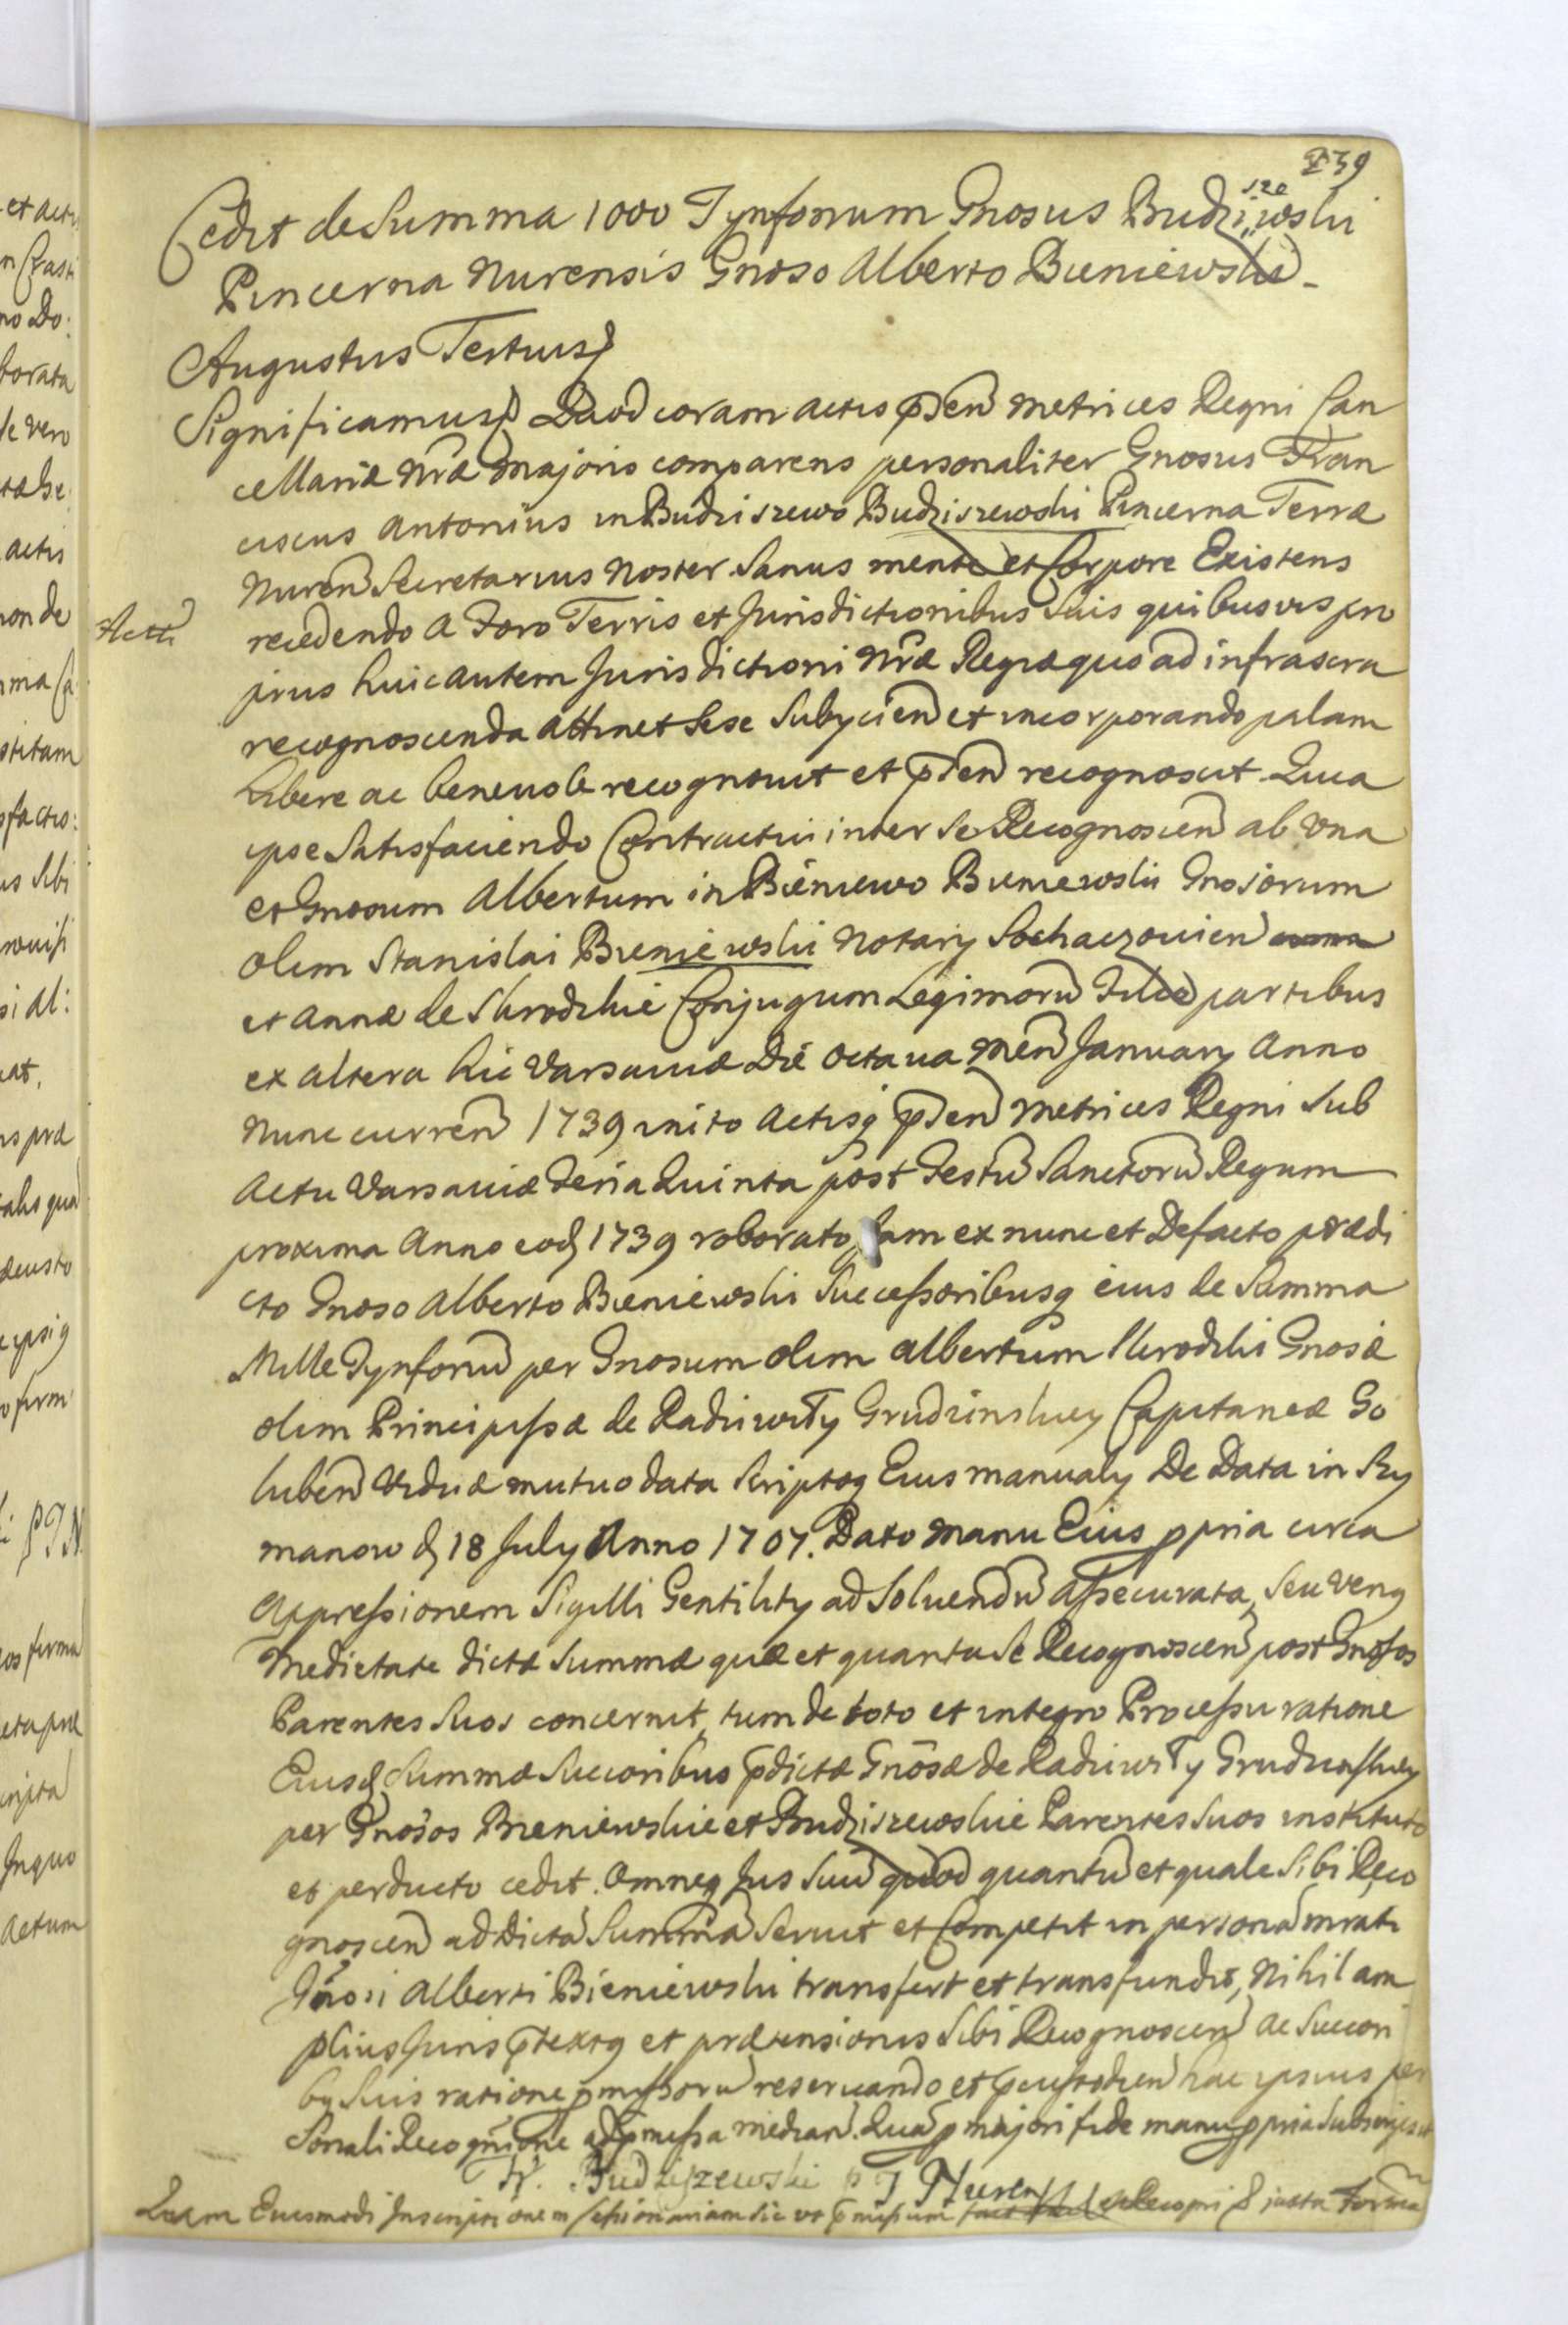 239
Cedit de Summa 1000 Tynforum Gnosus Budziszewski
Pincerna Nurensis Gnoso Alberto Bieniewski.
Augustus Tertius
Significamus Quod coram actis pñten Metrices Regni Can
cellariæ Nræ Majoris comparens personaliter Gnosus Fran
ciscus Antonius in Budziszewo Budziszewski Pincerna Terræ
Nuren Secretarius Noster Sanus mente et Corpore Existens
recedendo a Foro Terris et Jurisdictionibus Suis quibusvis pro
prius huic autem Jurisdictioni Nræ Regiæ quo ad infrascra
recognoscenda attinet sese Subijcien et incorporando palam
Libere ac benevole recognovit et pñten recognoscit. Quia
ipse Satisfaciendo Contractui inter Se Recognoscen ab una
et Gnosum Albertum in Bieniewo Bieniewski Gnosorum
olim Stanislai Bieniewski Notarij Sochaczovien
et Annæ de Skrodzkie Conjugum Legimorũ Filiũ partibus
ex altera hic Varsaviæ Die Octava Men January Anno
Nunc curren 1739 inito Actisq pñten Metrices Regni Sub
Actu Varsaviæ Feria Quinta post Festũ Sanctorũ Regum
proxima Anno eod 1739 roborato, Jam ex nunc et Defacto prædi
cto Gnoso Alberto Bieniewski Successoribusq eius de Summa
Mille Tynforũ per Gnosum olim Albertum Skrodzki Gnosæ
olim Principissæ de Radziwiłły Grudzinskiey Capitaneæ Go
luben Viduæ mutuo data Scriptoq Eius manualy De Data in Ry
manow d 18 July Anno 1707. Dato manu Eius ppria circa
Appressionem Sigilli Gentility ad Solvendũ assecurata, Seu Verius
Medietate dictæ Summæ quæ et quanta Se Recognoscen post Gnosos
Parentes Suos concernit, tum de toto et integro Processu ratione
Eiusd Summæ Succoribus pdictæ Gnosæ de Radziwiłły Grudzinskiey
per Gnosos Bieniewskie et Budziszewskie Parentes Suos instituto
et perducto cedit. Omneq Jus Suũ quod quantũ et quale Sibi Reco
gnoscen ad Dictã Summã Servit et Competit in personã mrati
Gnosi Alberti Bieniewski transfert et transfundit, Nihil am
plius Juris ptextq et prætensionis Sibi Recognoscen ac Succori
bq Suis ratione pmissorũ reservando et pcustodien hac ipsius per
Sonali Recognitione ad pmissa median. Quã p majori fide manu ppria Subscripsit
Budziszewski P J Nurski
Quam Eiusmodi Inscriptionem juxta formã